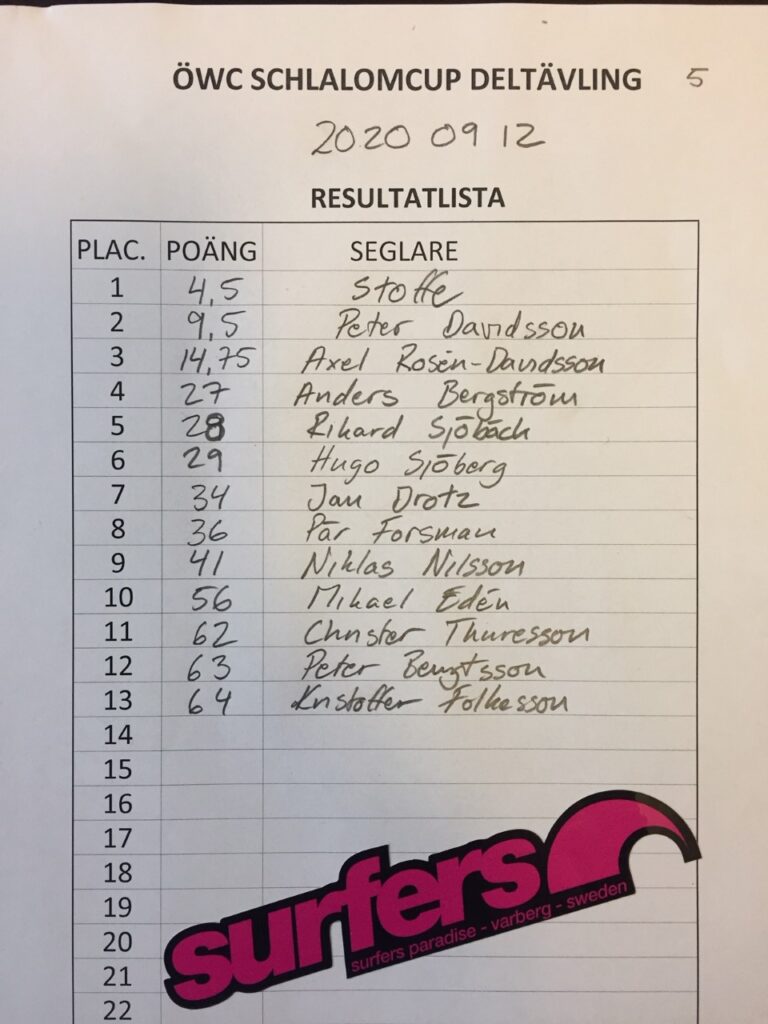 ÖWC SCHLALOMCUP DELTÄVLING 5
2020 09 12
RESULTATLISTA
PLAC. POÄNG SEGLARE
1 4,5 Stoffe
2 9,5 Peter Davidsson
3 14,75 Axel Rosén-Davidsson
4 27 Anders Bergström
5 28 Rikard Sjöbäck
6 29 Hugo Sjöberg
7 34 Jan Drotz
8 36 Pär Forsman
9 41 Niklas Nilsson
10 56 Mikael Edén
11 62 Christer Thuresson
12 63 Peter Bengtsson
13 64 Kristoffer Folkesson
14
15
16
17
18
19
20
21
22
surfers
surfers paradise - varberg - sweden